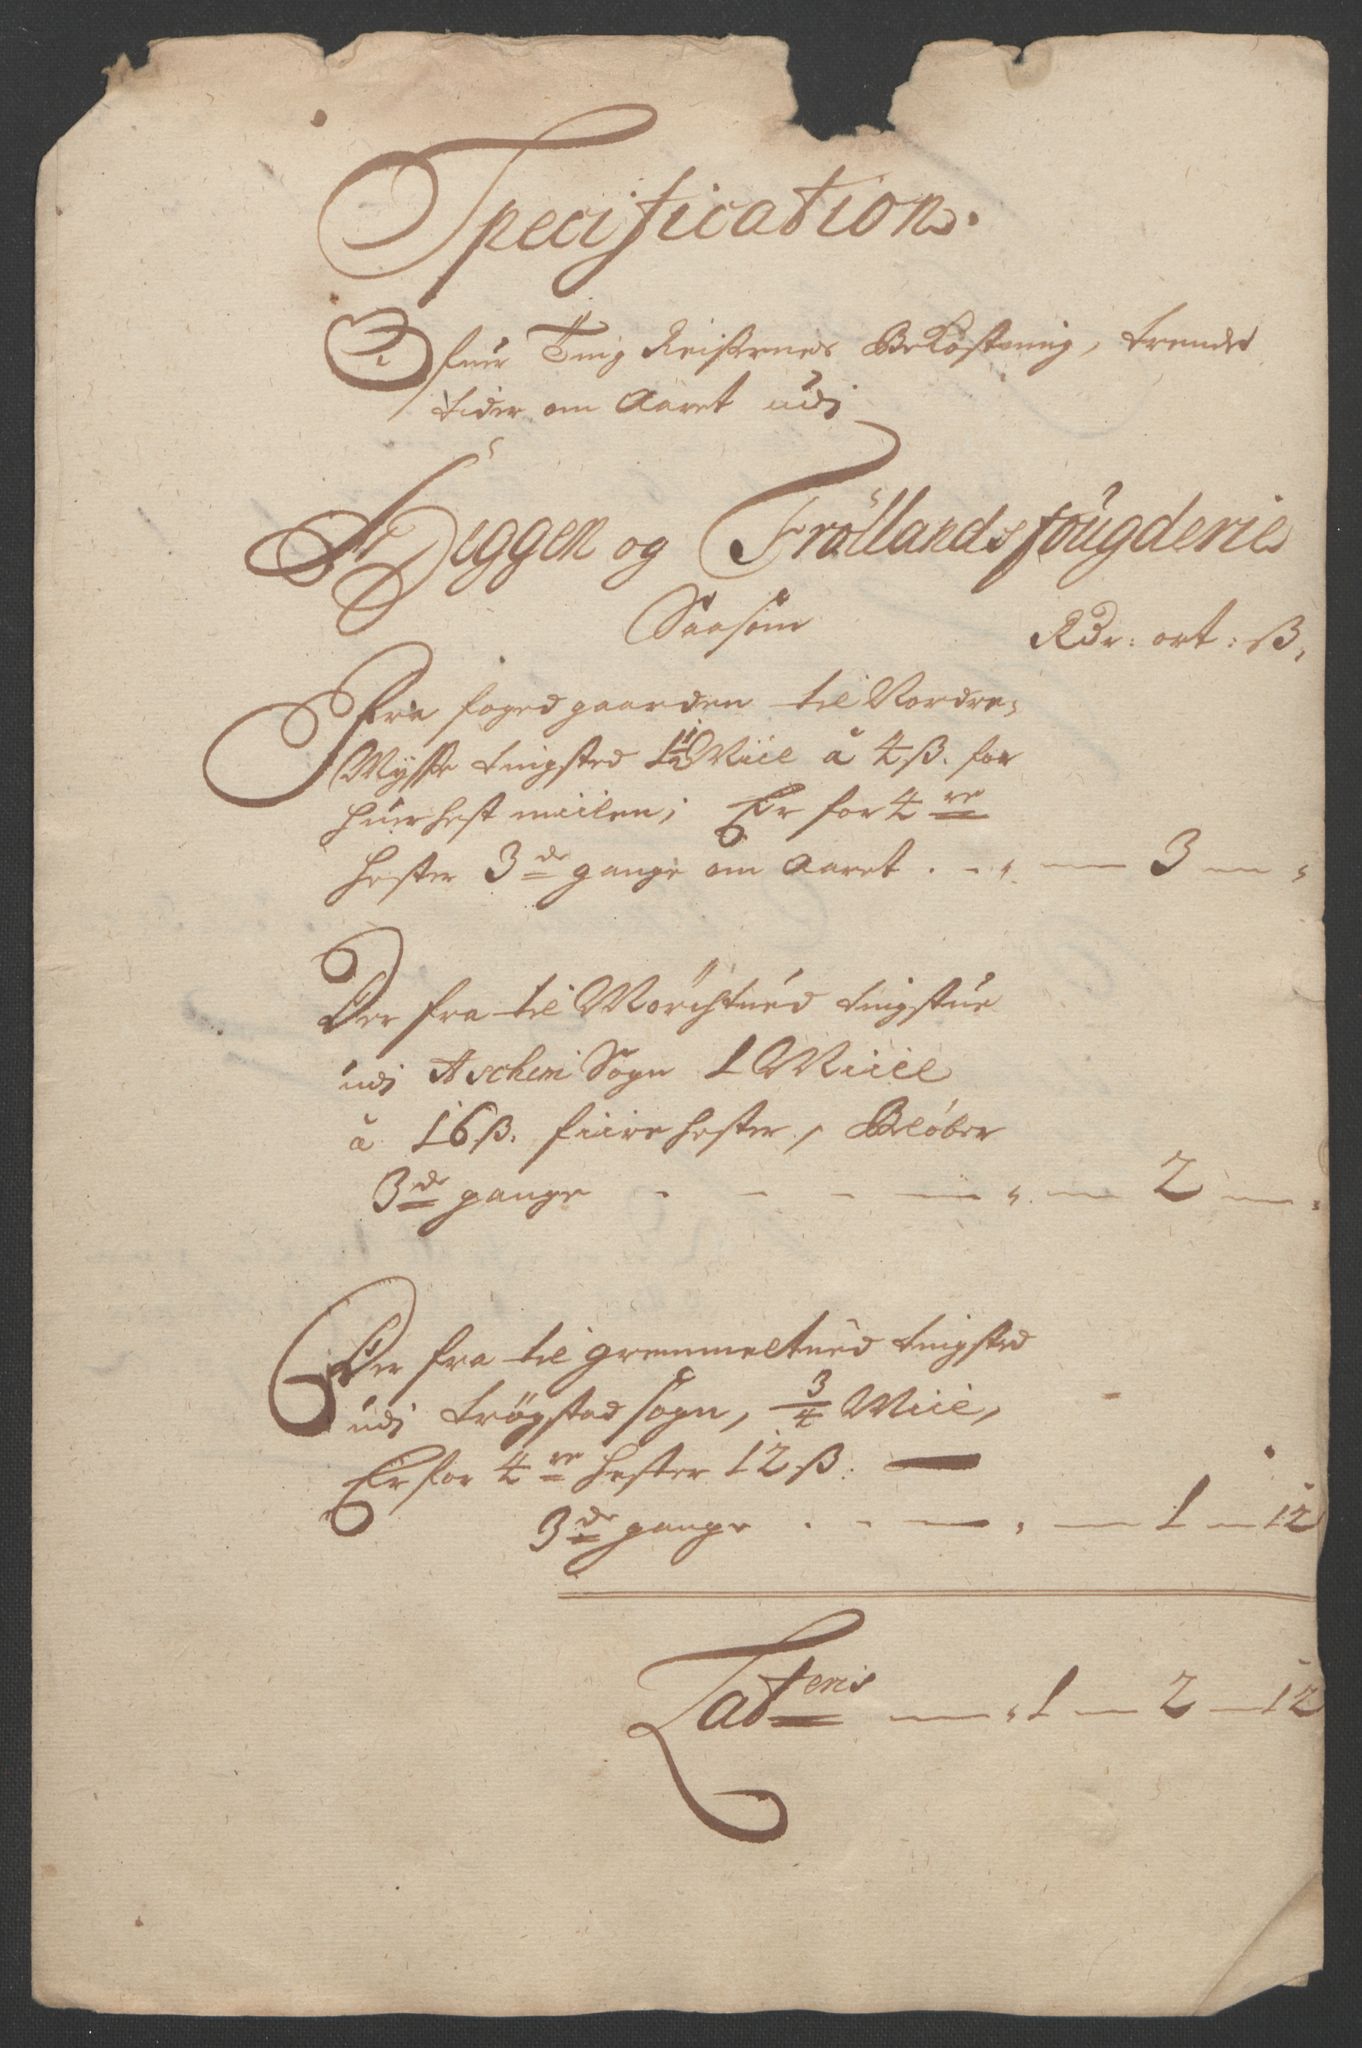 Specification.
Ofuer Ting Reisernes Bekostning, trende
tider om Aaret udj
Heggen og Frøllands fougderie
Saasom
Rdr: ort: ß.
Fra fogedgaarden til Nordre
Mysse tingsted 1½ Miil á 4 ß. for
huer hest miilen; Er for 4re
hester 3de gange om Aaret . - " — 3 — "
Der fra til Mörchtued tingstue
udj Aschem Sogn 1 Miiel
á 16 ß. fiire hester, Beløber
3de gange - - - — " — 2 — "
Der fra til gremmeltued tingsted
udj trøgstad sogn, 3/4 Miil,
Er for 4re hester 12 ß. —
3de gange . - — " — 1 — 12
Lateris — " 1 — 2 — 12